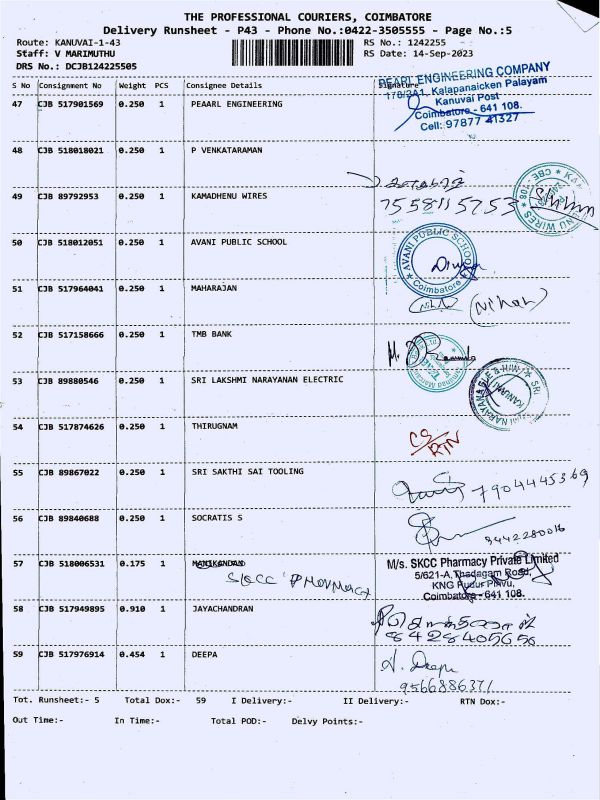 THE PROFESSIONAL COURIERS, COIMBATORE
Delivery Runsheet - P43 - Phone No.:0422-3505555 - Page No.:5
Route: KANUVAI-1-43 RS No.: 1242255
Staff: V MARIMUTHU RS Date: 14-Sep-2023
DRS No.: DCJB124225505
S No Consignment No Weight PCS Consignee Details Signature
47 CJB 517901569 0.250 1 PEAARL ENGINEERING
PEARL ENGINEERING COMPANY
176/2A1, Kalapanaicken Palayam
Kanuvai Post
Coimbatore - 641 108.
Cell: 97877 41327
48 CJB 518018021 0.250 1 P VENKATARAMAN
49 CJB 89792953 0.250 1 KAMADHENU WIRES
7558115753
NU WIRES * CBE - 108
50 CJB 518012051 0.250 1 AVANI PUBLIC SCHOOL
AVANI PUBLIC SCHOOL
Coimbatore
51 CJB 517964041 0.250 1 MAHARAJAN
(Nihar)
52 CJB 517158666 0.250 1 TMB BANK
53 CJB 89880546 0.250 1 SRI LAKSHMI NARAYANAN ELECTRIC
KANUVAI
54 CJB 517874626 0.250 1 THIRUGNAM
CS/RTN
55 CJB 89867022 0.250 1 SRI SAKTHI SAI TOOLING
7904445369
56 CJB 89840688 0.250 1 SOCRATIS S
9442280016
57 CJB 518006531 0.175 1 MANIKANDAN
SKCC
M/s. SKCC Pharmacy Private Limited
5/621-A, Thadagam Road,
KNG Pudur Pirivu,
Coimbatore - 641 108.
58 CJB 517949895 0.910 1 JAYACHANDRAN
8428405656
59 CJB 517976914 0.454 1 DEEPA
A. Deepa
9566886371
Tot. Runsheet:- 5 Total Dox:- 59 I Delivery:- II Delivery:- RTN Dox:-
Out Time:- In Time:- Total POD:- Delvy Points:-